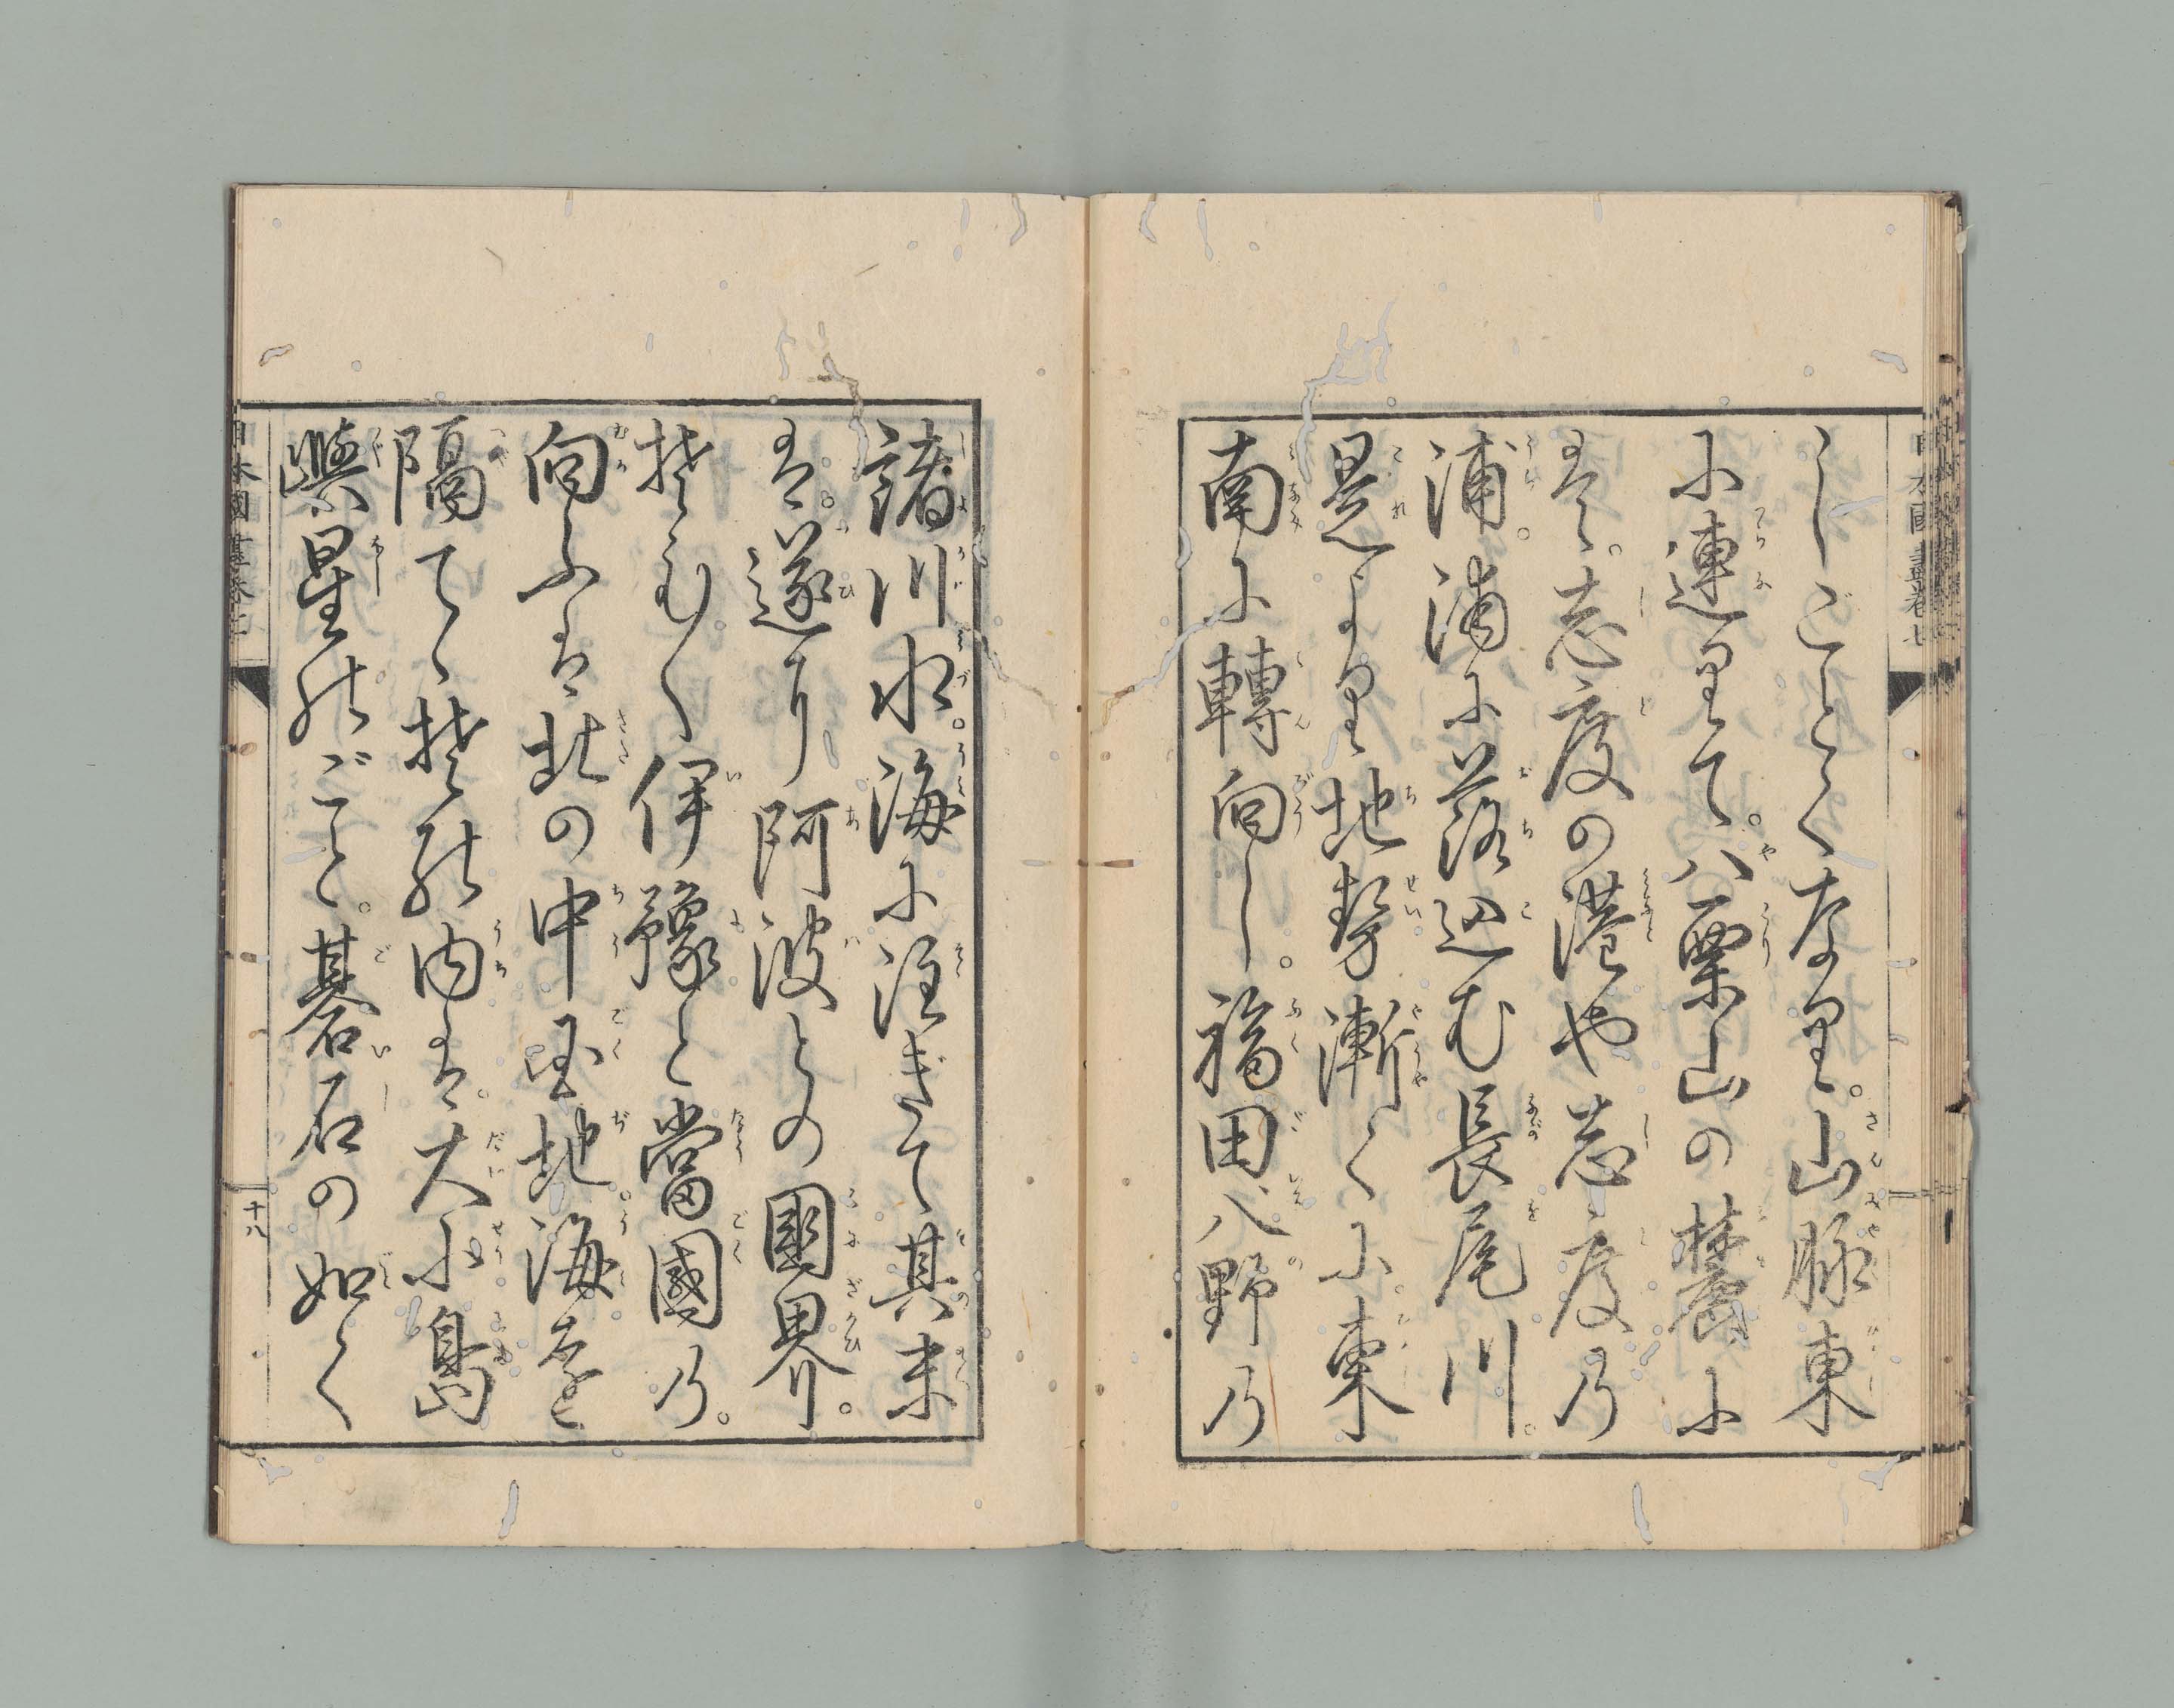 こしごとくなり。山脈東
に連りて。八栗山の麓に
は。志度の港や志度の
浦。浦に落込む長尾川。
是より地勢漸くに。東
南に轉向し。福田八野の
諸川水。海に注ぎて其末
は。遂に阿波との國界。
そむく伊豫と當國の。
向ふは北の中国地。海を
隔てゝ其内は。大小島
嶼星のごと。碁石の如く
日本國盡卷七
十八